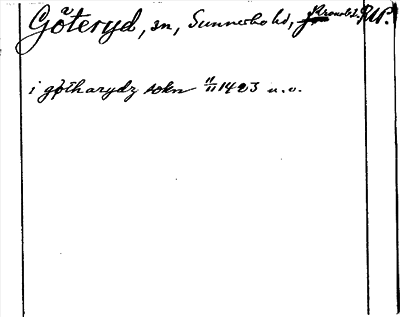 Göteryd, sn, Sunnerbo hd, Kronob. l. RA.
i götharydz sokn 11/11 1423 u.o.